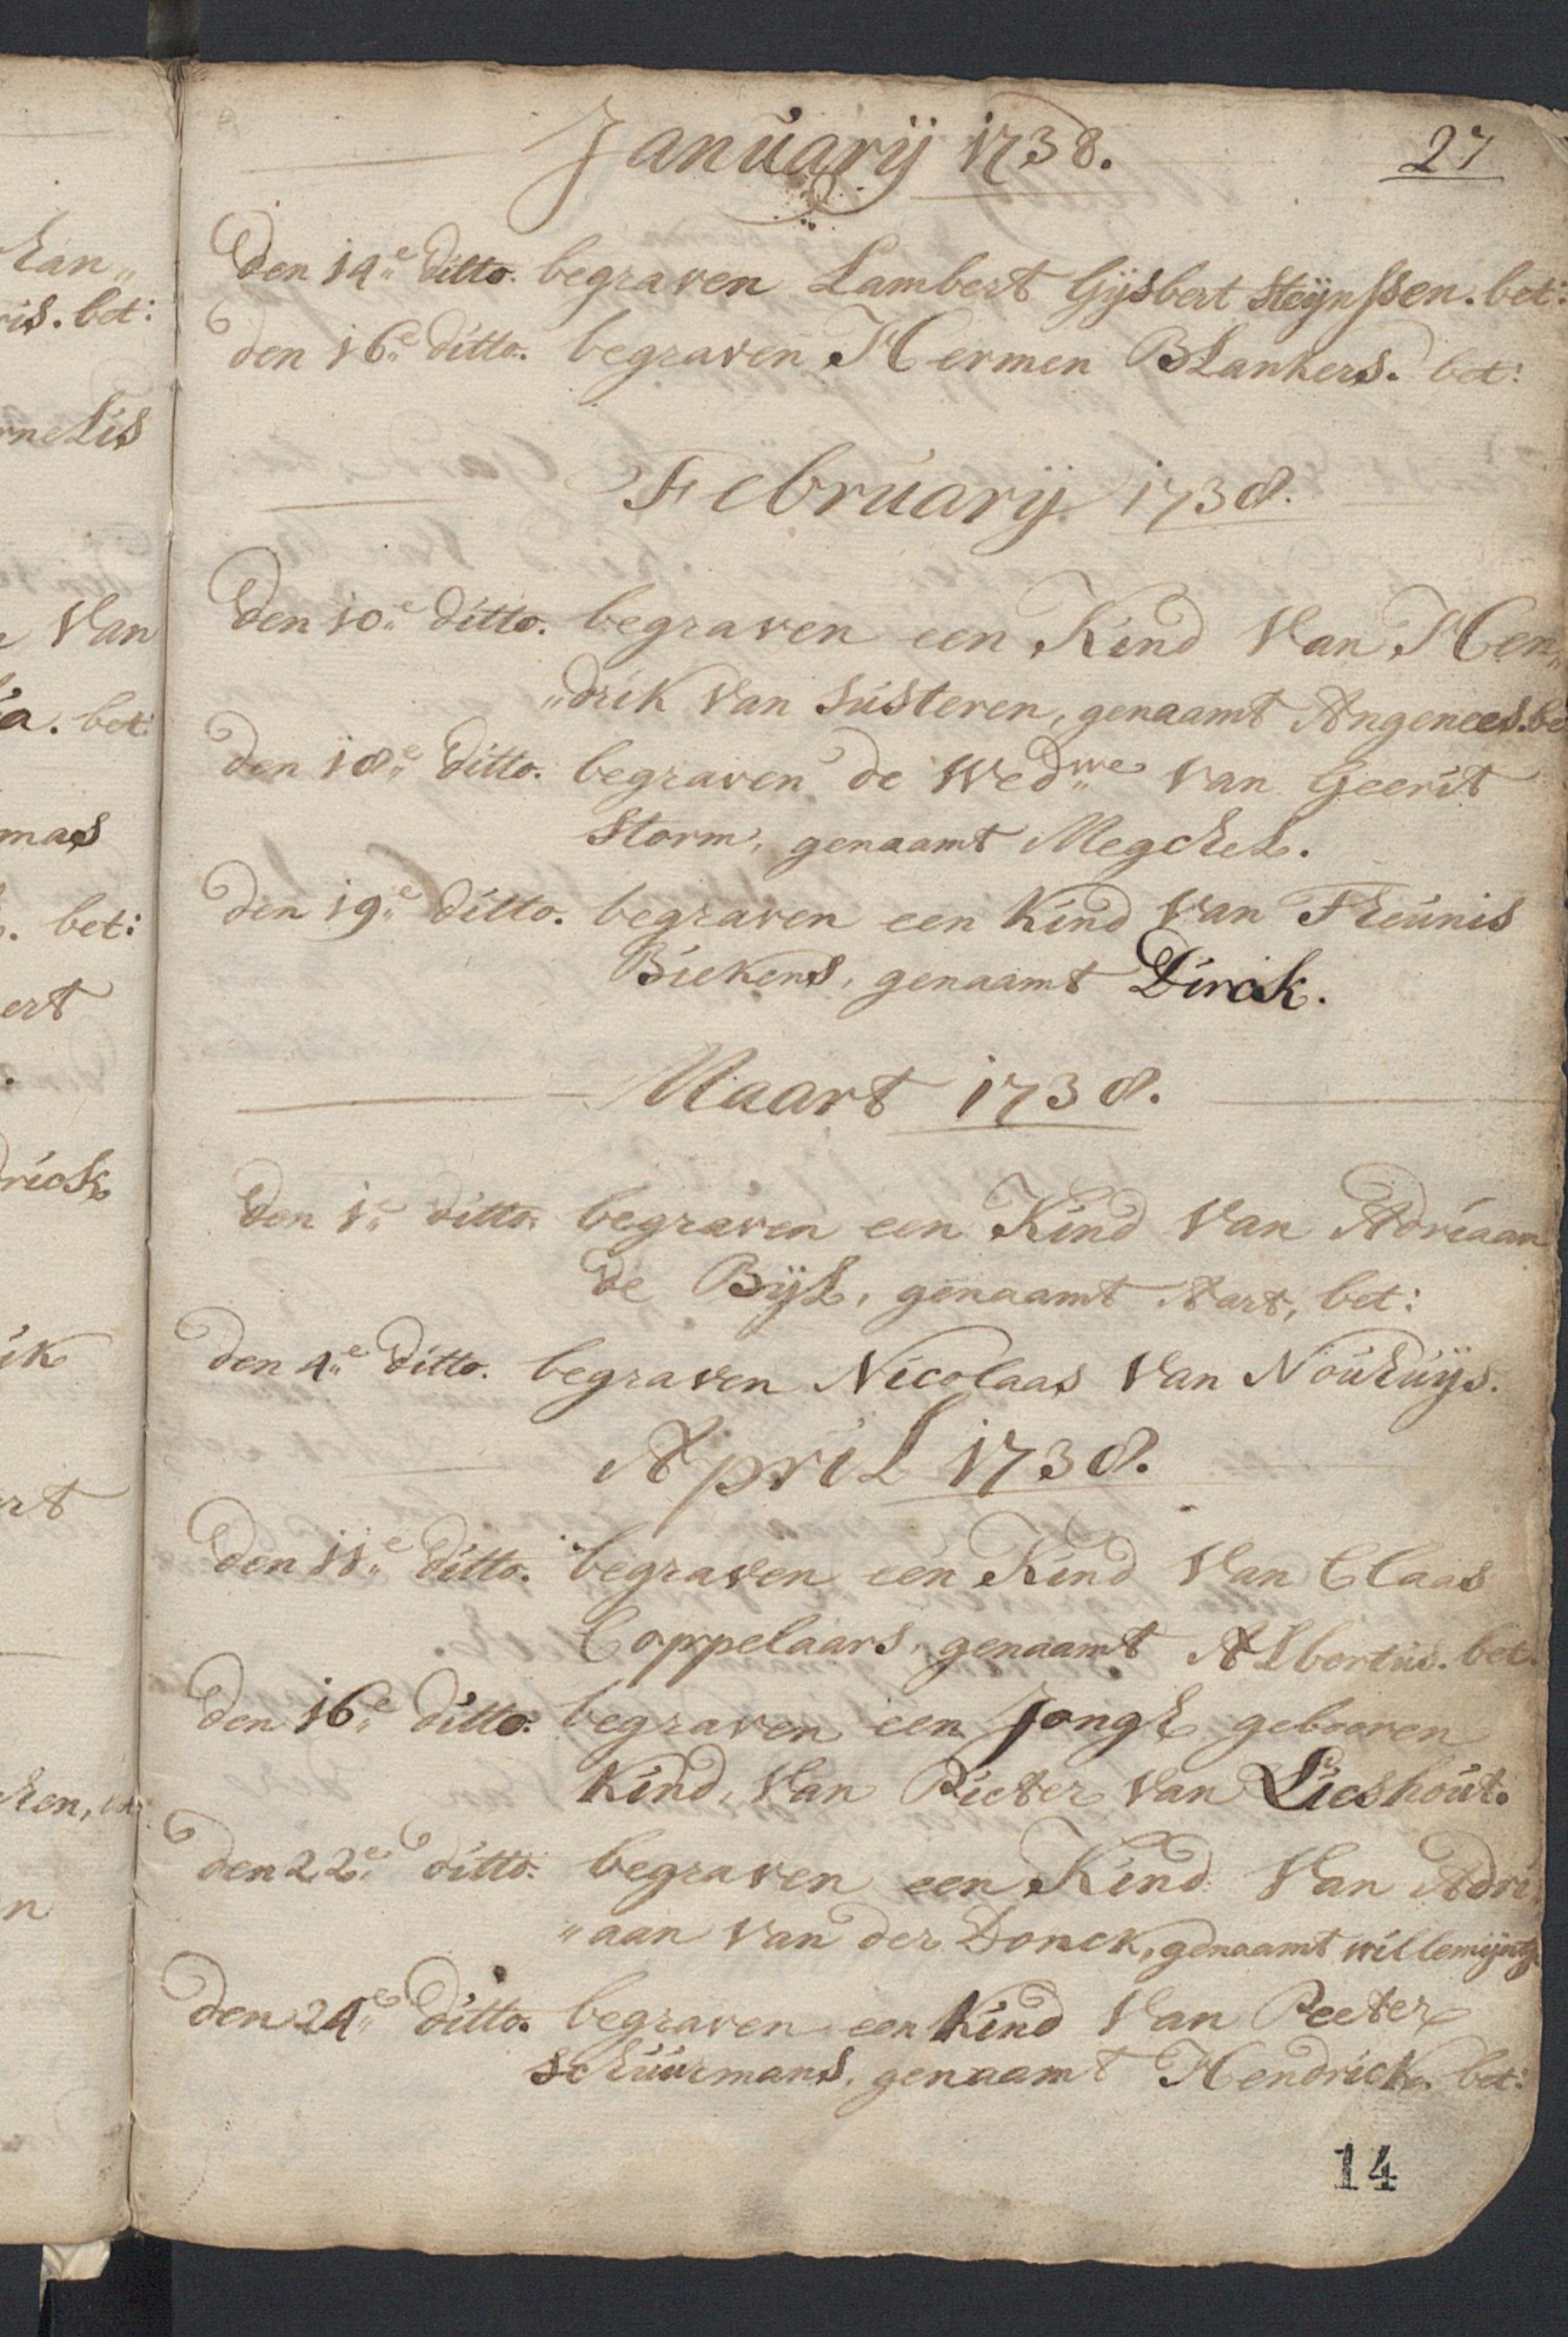 Januarij 1738.
27
Den 14e. ditto. begraven Lambert Gijsbert Steijnssen. bet:
den 16e. ditto. begraven Hermen Blankers. bet:
Februarij 1738.
Den 10e. ditto. begraven een Kind Van Hen„
„drik Van Susteren, genaamt Angenees. be
den 18e. ditto. begraven de Wedwe Van Geerit
Storm, genaamt Megchel.
den 19e. ditto. begraven een Kind Van Theunis
Biekens, genaamt Dirck.
Maart 1738.
den 1e. ditto. begraven een Kind Van Adriaan
de Bijl, genaamt Aart, bet:
den 4e. ditto. begraven Nicolaas Van Nouhuijs.
April 1738.
Den 11e. ditto. begraven een Kind Van Claas
Coppelaars, genaamt Albertus. bet.
den 16e. ditto. begraven een Jongh gebooren
Kind, Van Pieter Van Lieshout.
den 22e. ditto. begraven een Kind Van Adri„
„aan Van der Donck, genaamt willemijntj
den 24e. ditto. begraven een Kind Van Peeter
Schuurmans, genaamt Hendrick. bet:
14